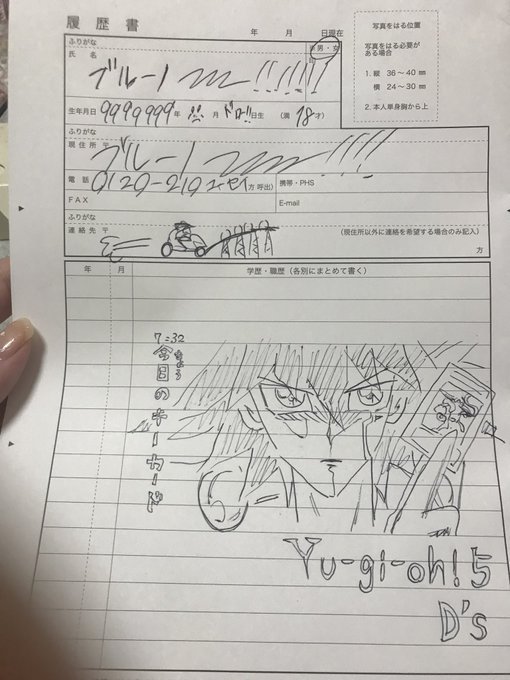 履歴書
年 月 日現在
写真をはる位置
写真をはる必要が
ある場合
1. 縦 36〜40 mm
横 24〜30 mm
2. 本人単身胸から上
ふりがな
氏 名
男・女
ブルーノ〜〜!!!!!
生年月日 9999999年 月 日生 (満 18才)
ふりがな
現住所 〒
ブルーノ〜〜
電 話 0120-219 方呼出)
携帯・PHS
FAX
E-mail
ふりがな
連絡先 〒
(現住所以外に連絡を希望する場合のみ記入)
方
年 月 学歴・職歴(各別にまとめて書く)
7:32
今日のキーカード
きょう
Yu-gi-oh! 5
D's